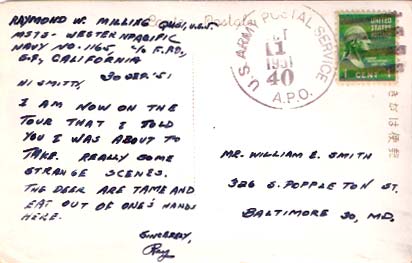 RAYMOND W. MILLING QM1, U.S.S.
MSTS - WESTERNPACIFIC
NAVY NO. 1165, C/O F.P.O.,
S.F., CALIFORNIA
30 SEP. '51
HI SMITTY,
I AM NOW ON THE
TOUR THAT I TOLD
YOU I WAS ABOUT TO
TAKE. REALLY SOME
STRANGE SCENES.
THE DEER ARE TAME AND
EAT OUT OF ONE'S HANDS
HERE.
SINCERELY,
Ray
U.S. ARMY POSTAL SERVICE
1
1951
40
A.P.O.
UNITED STATES
1 CENT 1
MR. WILLIAM E. SMITH
326 S. POPPLETON ST.
BALTIMORE 30, MD.
きがは便郵